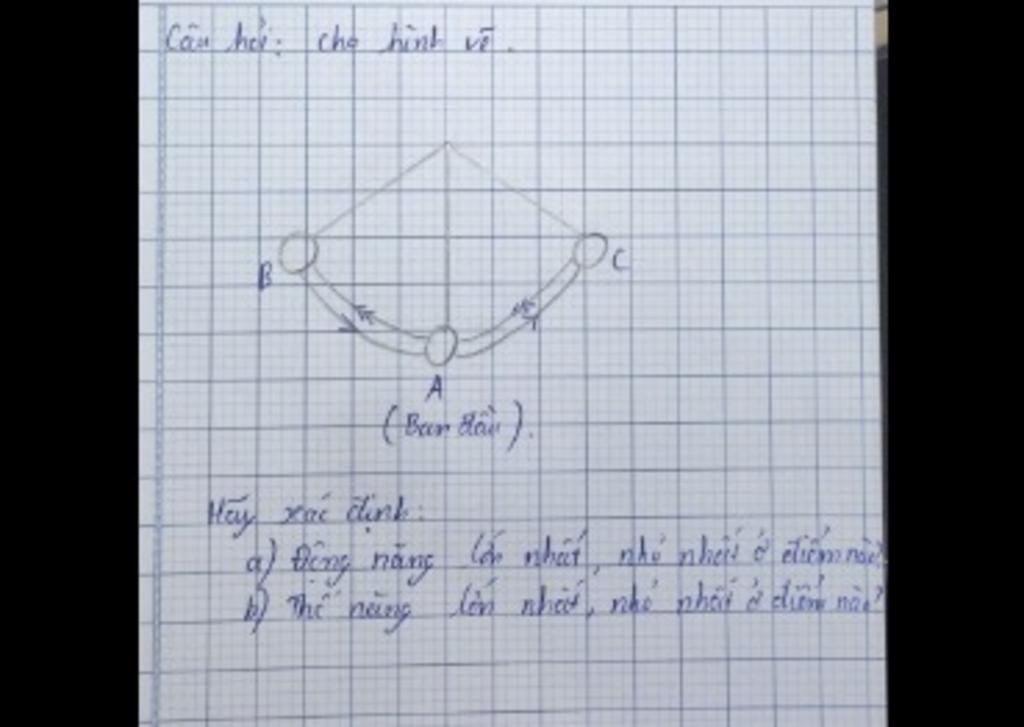 Câu hỏi: cho hình vẽ.
B
C
A
(Ban đầu).
Hãy xác định:
a) Động năng lớn nhất, nhỏ nhất ở điểm nào?
b) Thế năng lớn nhất, nhỏ nhất ở điểm nào?